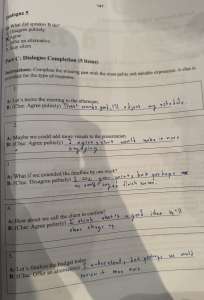 Dialogue 5
What did speaker B do?
Disagree politely
Agree
an alternative
Stay silent
Part C: Dialogue Completion (5 items)
Instructions: Complete the missing part with the most polite and suitable expression. A clue is
provided for the type of response.
1.
A: Let's move the meeting to the afternoon.
B: (Clue: Agree politely) That works good, I'll adjust my schedule.
2.
A: Maybe we could add more visuals to the presentation.
B: (Clue: Agree politely) I agree, that would make it more
engaging.
3.
A: What if we extended the deadline by one week?
B: (Clue: Disagree politely) I see your point, but perhaps
we could finish sooner.
4.
A: How about we call the client to confirm?
B: (Clue: Agree politely) I think that's a good idea
5.
A: Let's finalize the budget today.
B: (Clue: Offer an alternative) I understand, but perhaps we could
review it